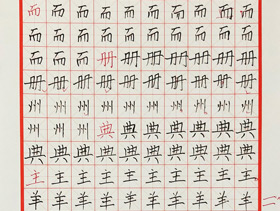 而而而而而而而而而而
而而而而而而而而而而
而而而册册册册册册册
册册册册册册册册册册
州州州州州州州州州州
州州州典典典典典典典
典典典典典典典典典典
主主主主主主主主主主
羊羊羊羊羊羊羊羊羊羊